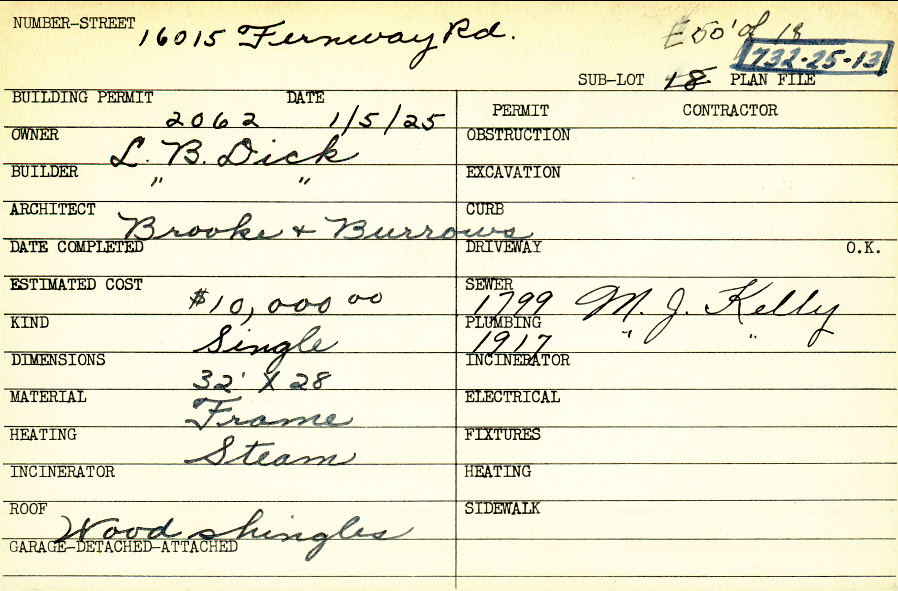 NUMBER-STREET 16015 Fernway Rd. E 50' of 18
732-25-13
SUB-LOT 18 PLAN FILE
BUILDING PERMIT DATE
2062 1/5/25
PERMIT CONTRACTOR
OWNER L. B. Dick
OBSTRUCTION
BUILDER " "
EXCAVATION
ARCHITECT Brooke & Burrows
CURB
DATE COMPLETED
DRIVEWAY O.K.
ESTIMATED COST $10,000 00
SEWER 1799 M. J. Kelly
KIND Single
PLUMBING 1917 " "
DIMENSIONS 32' X 28
INCINERATOR
MATERIAL Frame
ELECTRICAL
HEATING Steam
FIXTURES
INCINERATOR
HEATING
ROOF Wood shingles
SIDEWALK
GARAGE-DETACHED-ATTACHED